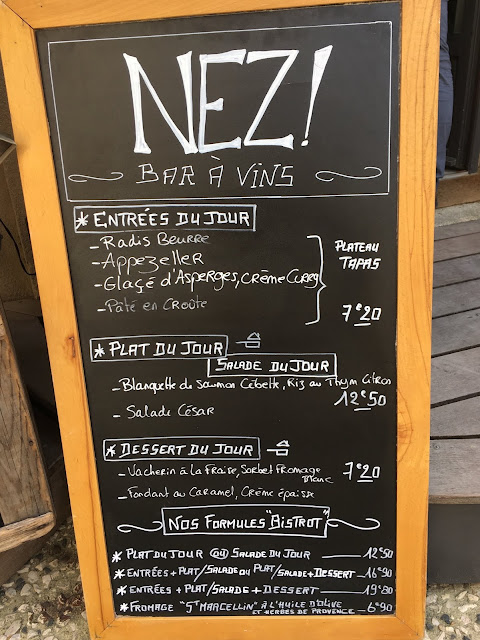 NEZ!
BAR À VINS
* ENTRÉES DU JOUR
- Radis Beurre
- Appezeller
- Glaçé d'Asperges, Crème Curry
- Pâté en Croûte
PLATEAU
TAPAS
7€20
* PLAT DU JOUR
SALADE DU JOUR
- Blanquette de Saumon Cébette, Riz au Thym Citron
12€50
- Salade César
* DESSERT DU JOUR
- Vacherin à la Fraise, Sorbet Fromage
Blanc
7€20
- Fondant au Caramel, Crème épaisse
NOS FORMULES "BISTROT"
* PLAT DU JOUR OU SALADE DU JOUR — 12€50
* ENTRÉES + PLAT/SALADE OU PLAT/SALADE + DESSERT — 16€90
* ENTRÉES + PLAT/SALADE + DESSERT — 19€80
* FROMAGE "ST MARCELLIN" À L'HUILE D'OLIVE
ET HERBES DE PROVENCE — 6€90